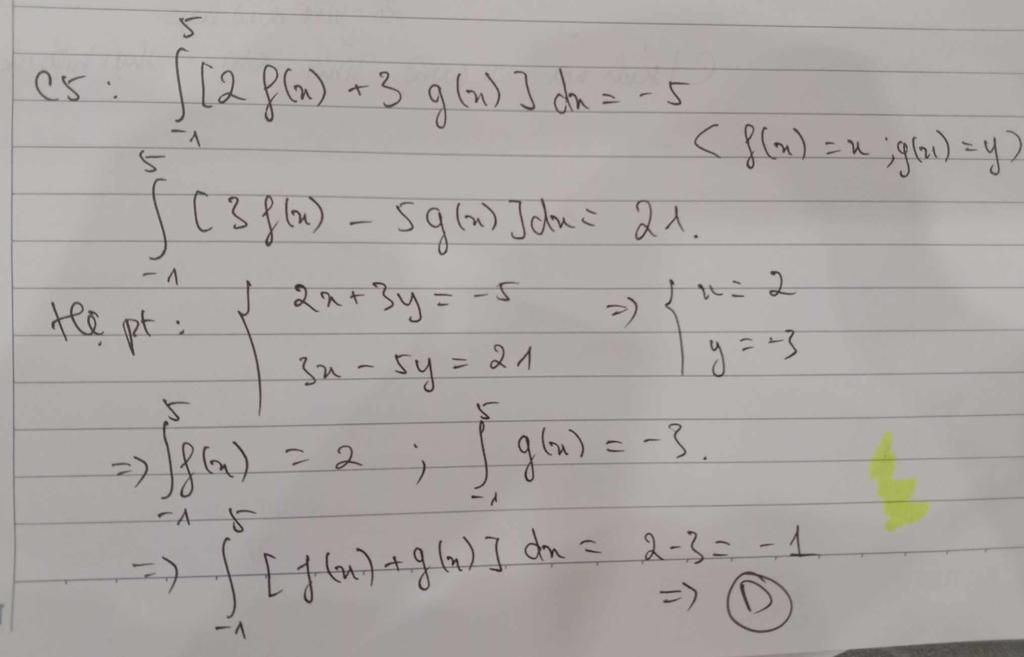 C5: ∫_{-1}^{5} [2 f(x) + 3 g(x)] dx = -5
( f(x) = x ; g(x) = y )
∫_{-1}^{5} [3 f(x) - 5g(x)] dx = 21.
Hệ pt: { 2x + 3y = -5 => { x = 2
3x - 5y = 21 y = -3
=> ∫_{-1}^{5} f(x) = 2 ; ∫_{-1}^{5} g(x) = -3.
=> ∫_{-1}^{5} [f(x) + g(x)] dx = 2-3 = -1
=> D